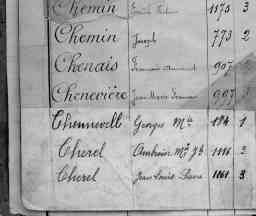 Chemin 1175 3
Chemin Joseph 773 2
Chenais 907
Chenevière Jean Marie 997 3
Chennevelle Georges Mie 184 1
Cherel Ambroise Mie Jh 1116 2
Cherel Jean Louis Pierre 1161 3